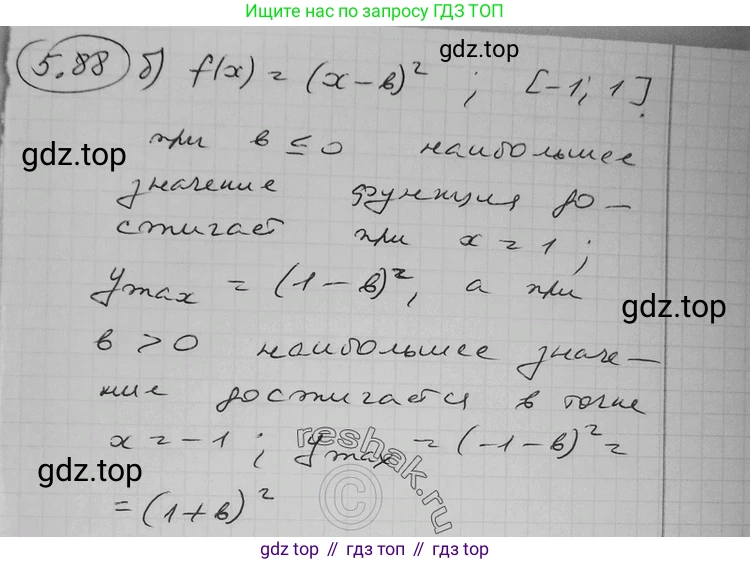 Ищите нас по запросу ГДЗ ТОП
5.88 б) f(x) = (x-в)² ; [-1; 1].
gdz.top
при в ≤ 0 наибольшее
gdz.top
значение функция до-
стигает при x = 1 ;
y max = (1-в)², а при
gdz.top
в > 0 наибольшее значе-
ние достигается в точке
x = -1 ; y max = (-1-в)² =
reshak.ru
gdz.top
©
= (1+в)²
gdz.top // гдз топ // gdz.top